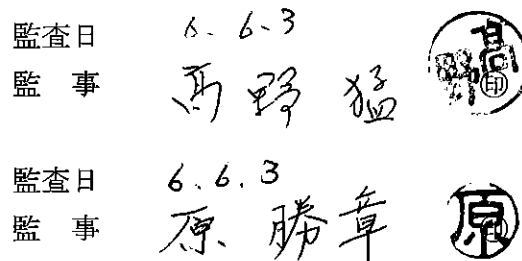 監査日 6. 6. 3
監 事 髙野 猛 髙野 印
監査日 6. 6. 3
監 事 原 勝章 原 印